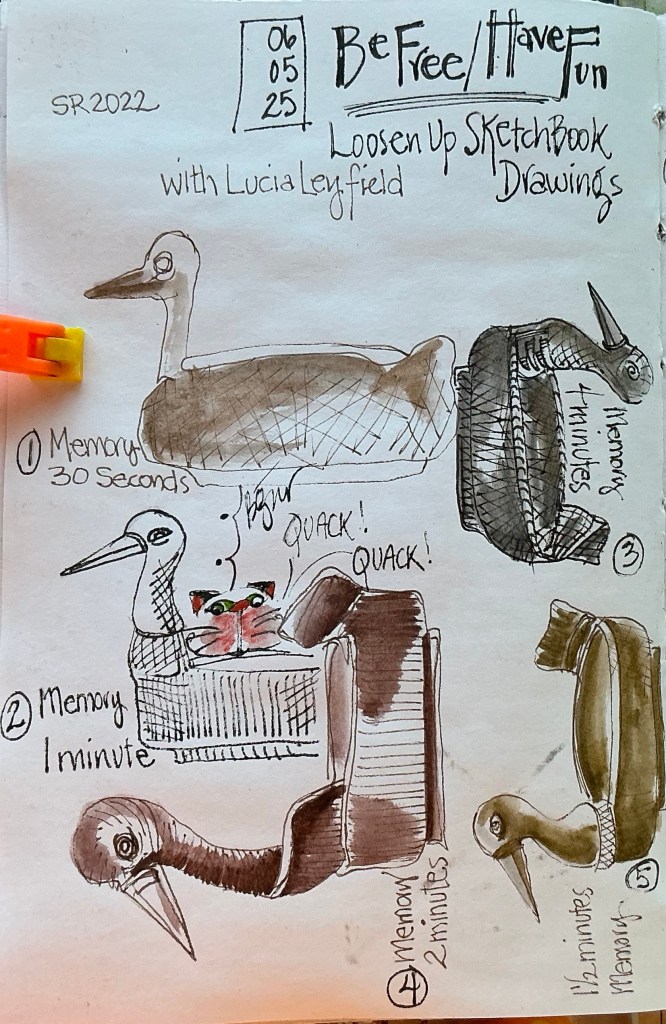 SR2022
06
05
25
Be Free/Have Fun
Loosen Up SketchBook
Drawings
with Lucia Leyfield
① Memory
30 Seconds
QUACK!
QUACK!
② Memory
1 minute
Memory
4 minutes
③
④ Memory
2 minutes
⑤
1½ minutes
Memory